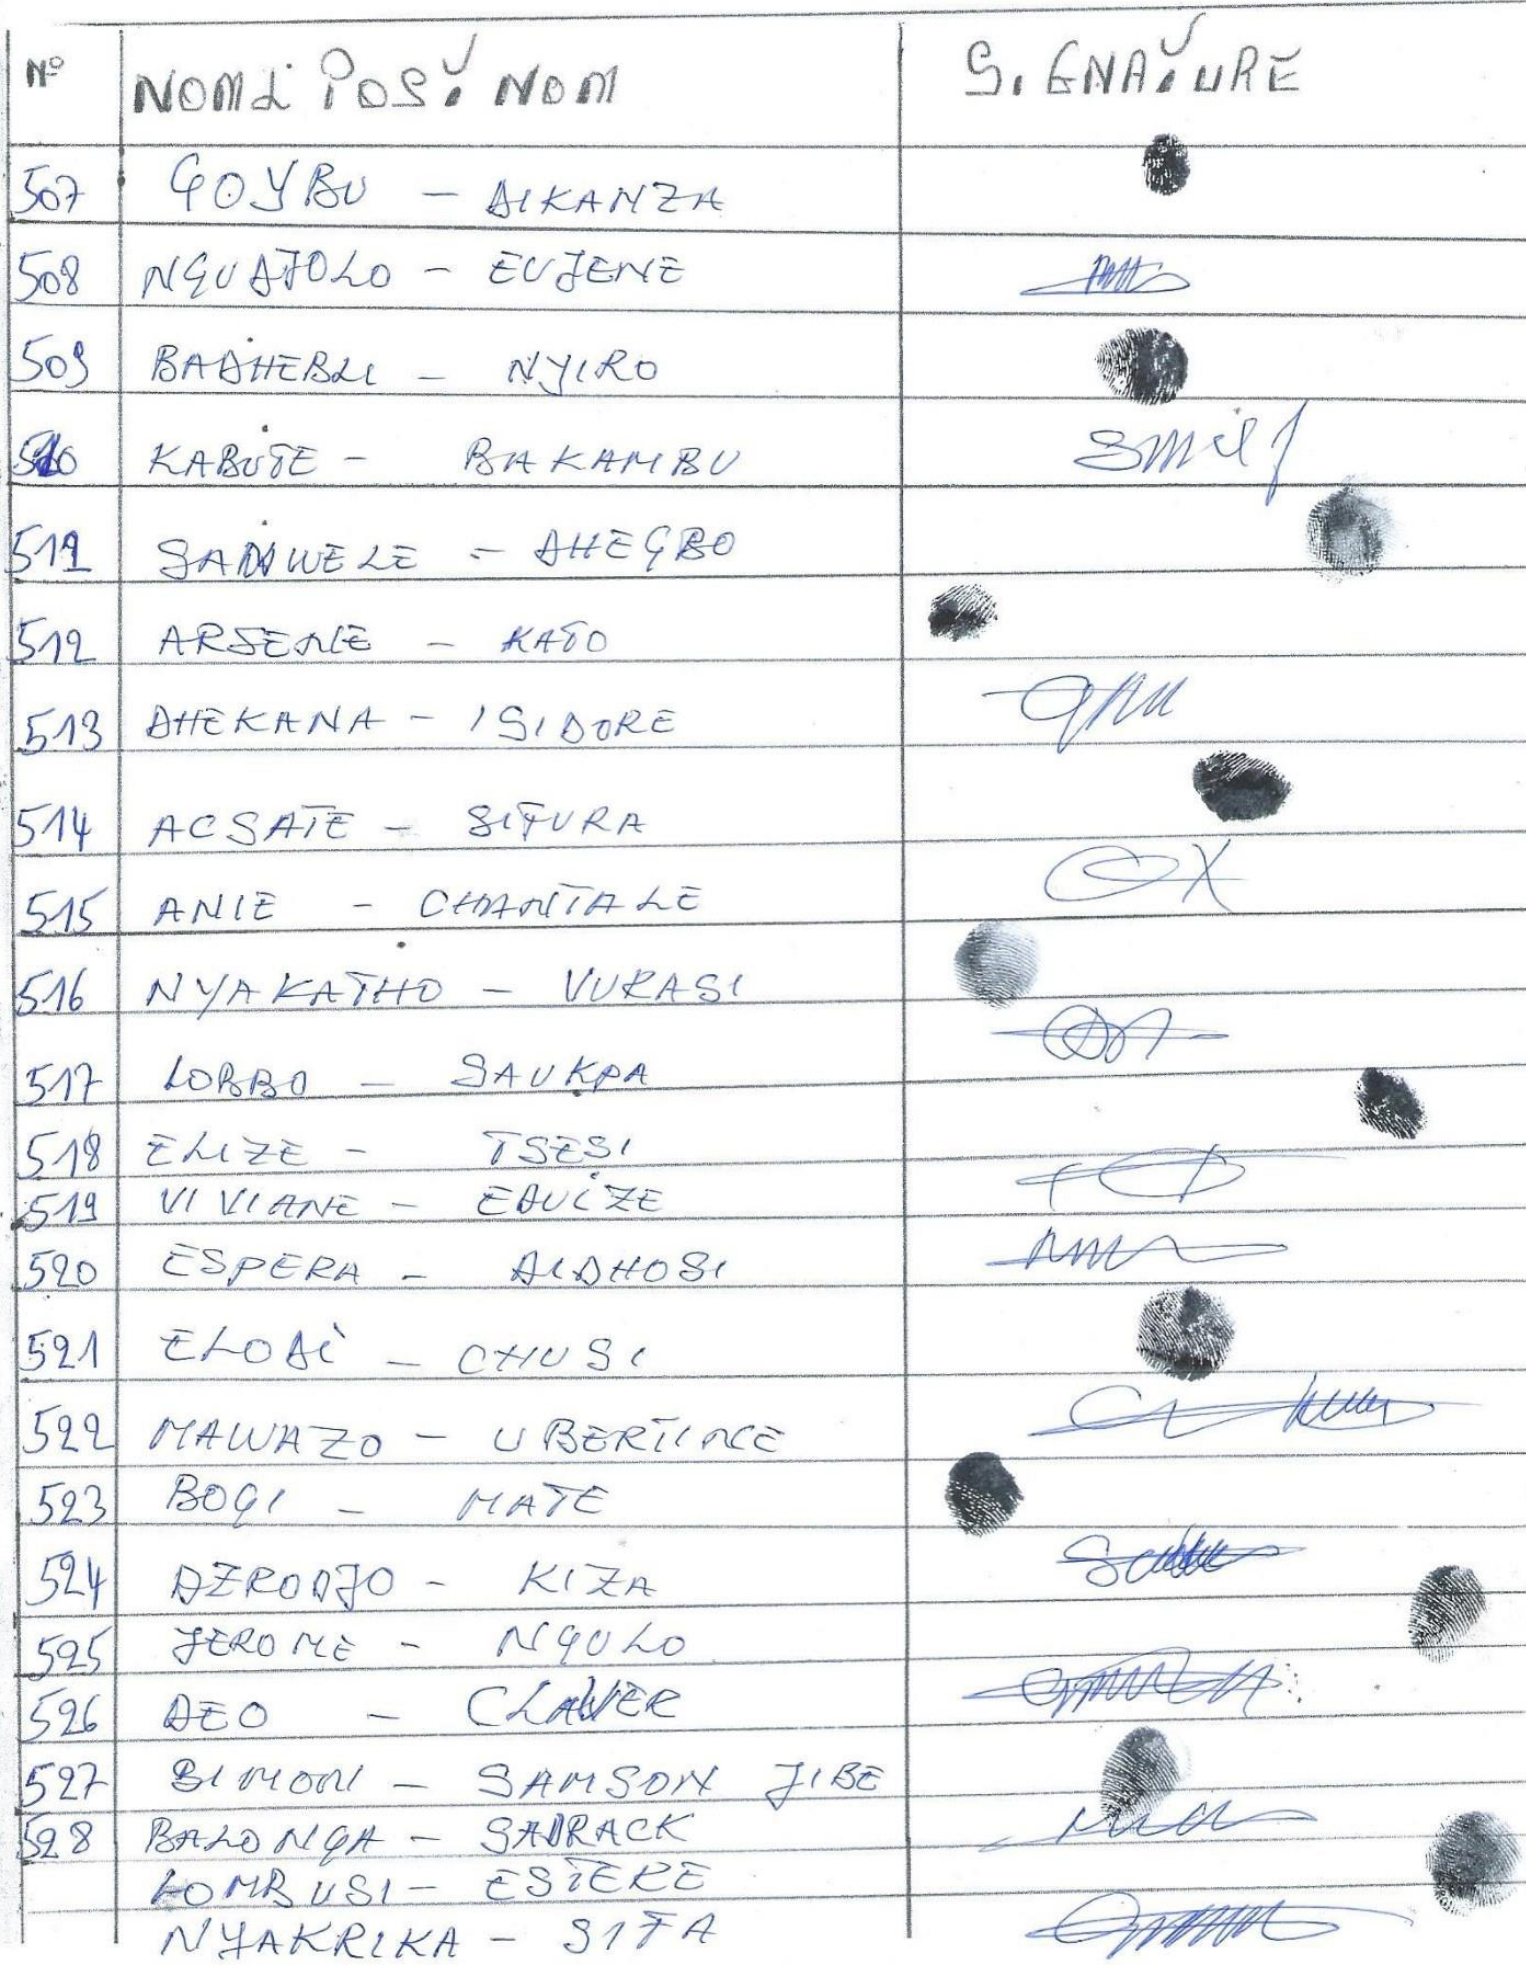 N° NOM & POST NOM SIGNATURE
507 GOYBU - DIKANZA
508 NGUDJOLO - EUJENE
509 BADHEBLI - NYIRO
510 KABUTE - BAKAMBU
511 SAMWELE - DHEGBO
512 ARSENE - KATO
513 DHEKANA - ISIDORE
514 ACSATE - SIFURA
515 ANIE - CHANTALE
516 NYAKATHO - VURASI
517 LOBBO - SAUKPA
518 ELIZE - TSESI
519 VIVIANE - EDUIZE
520 ESPERA - DIDHOSI
521 ELODI - CHUSI
522 MAWAZO - UBERTINE
523 BOGI - MATE
524 DZRODJO - KIZA
525 JEROME - NGULO
526 DEO - CLAVER
527 BIMONI - SAMSON JIBE
528 BALONGA - SADRACK
LOMBUSI - ESTERE
NYAKRIKA - SIFA